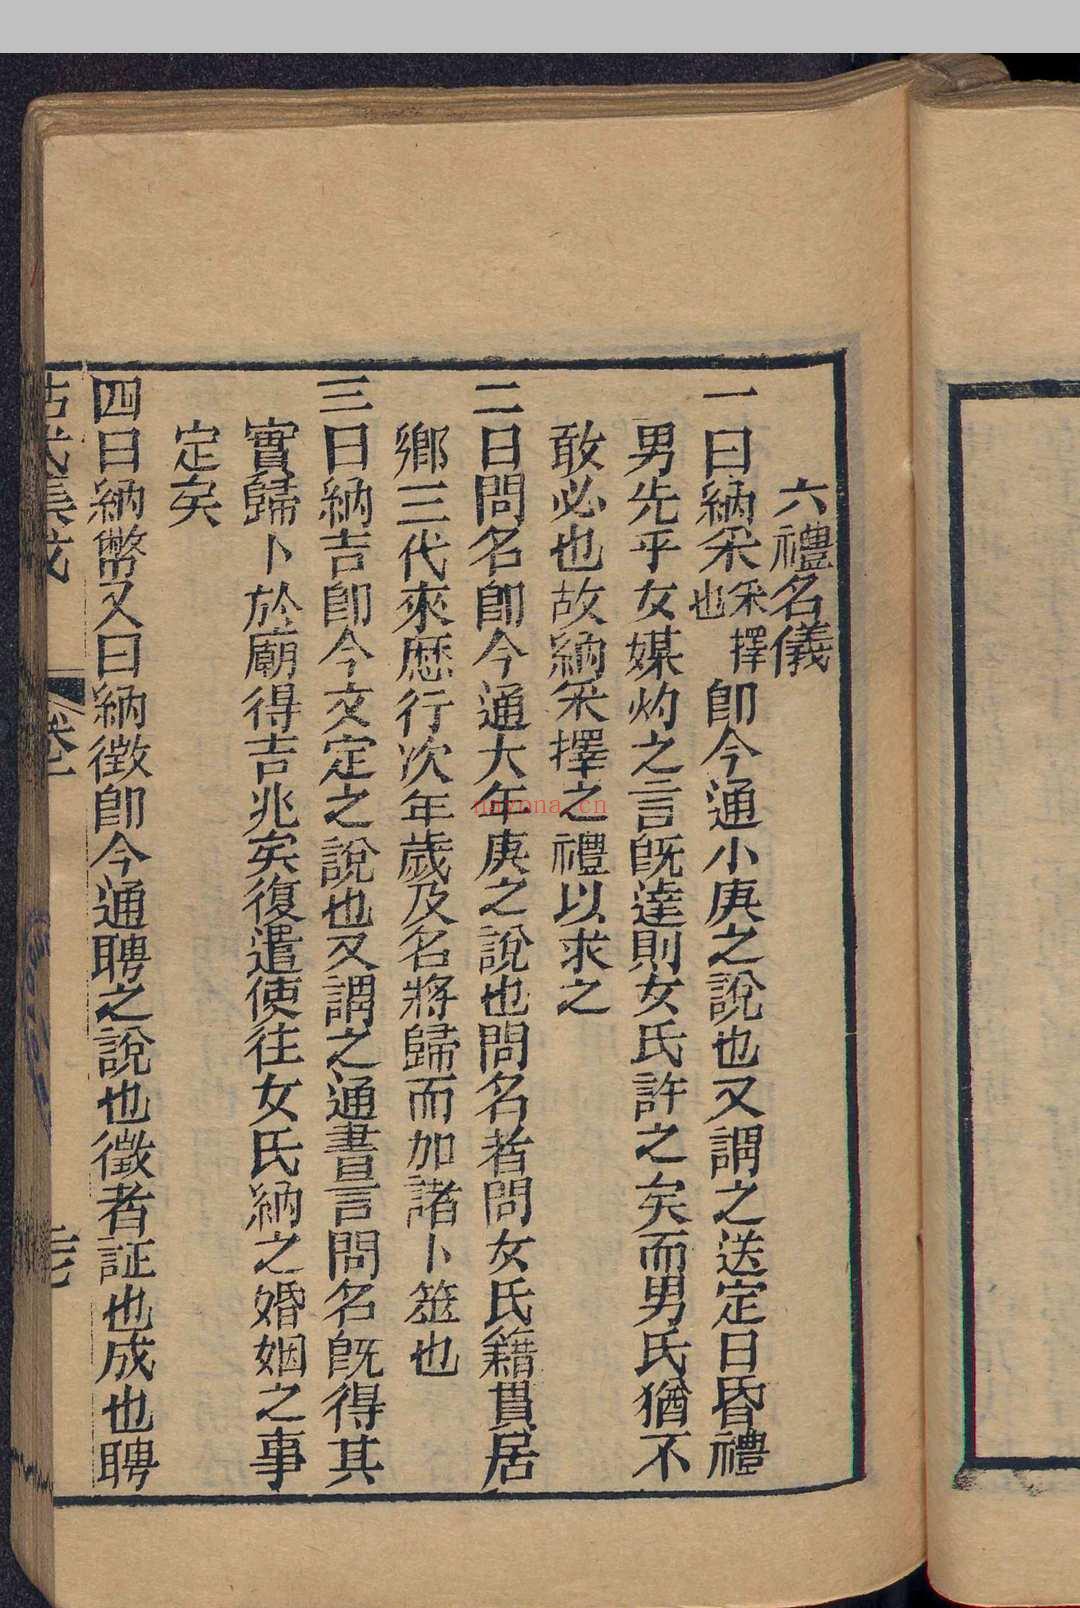 六禮名儀
一曰納采采擇也即今通小庚之說也又謂之送定日昏禮
男先乎女媒灼之言既達則女氏許之矣而男氏猶不
敢必也故納采擇之禮以求之
二曰問名即今通大年庚之說也問名者問女氏籍貫居
鄉三代來歷行次年歲及名將歸而加諸卜筮也
三曰納吉即今文定之說也又謂之通書言問名既得其
實歸卜於廟得吉兆矣復遣使往女氏納之婚姻之事
定矣
四曰納幣又曰納徵即今通聘之說也徵者証也成也聘